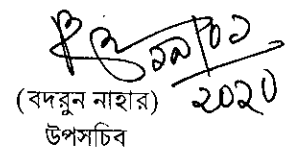 ১৯/০১
২০২০
(বদরুন নাহার)
উপসচিব